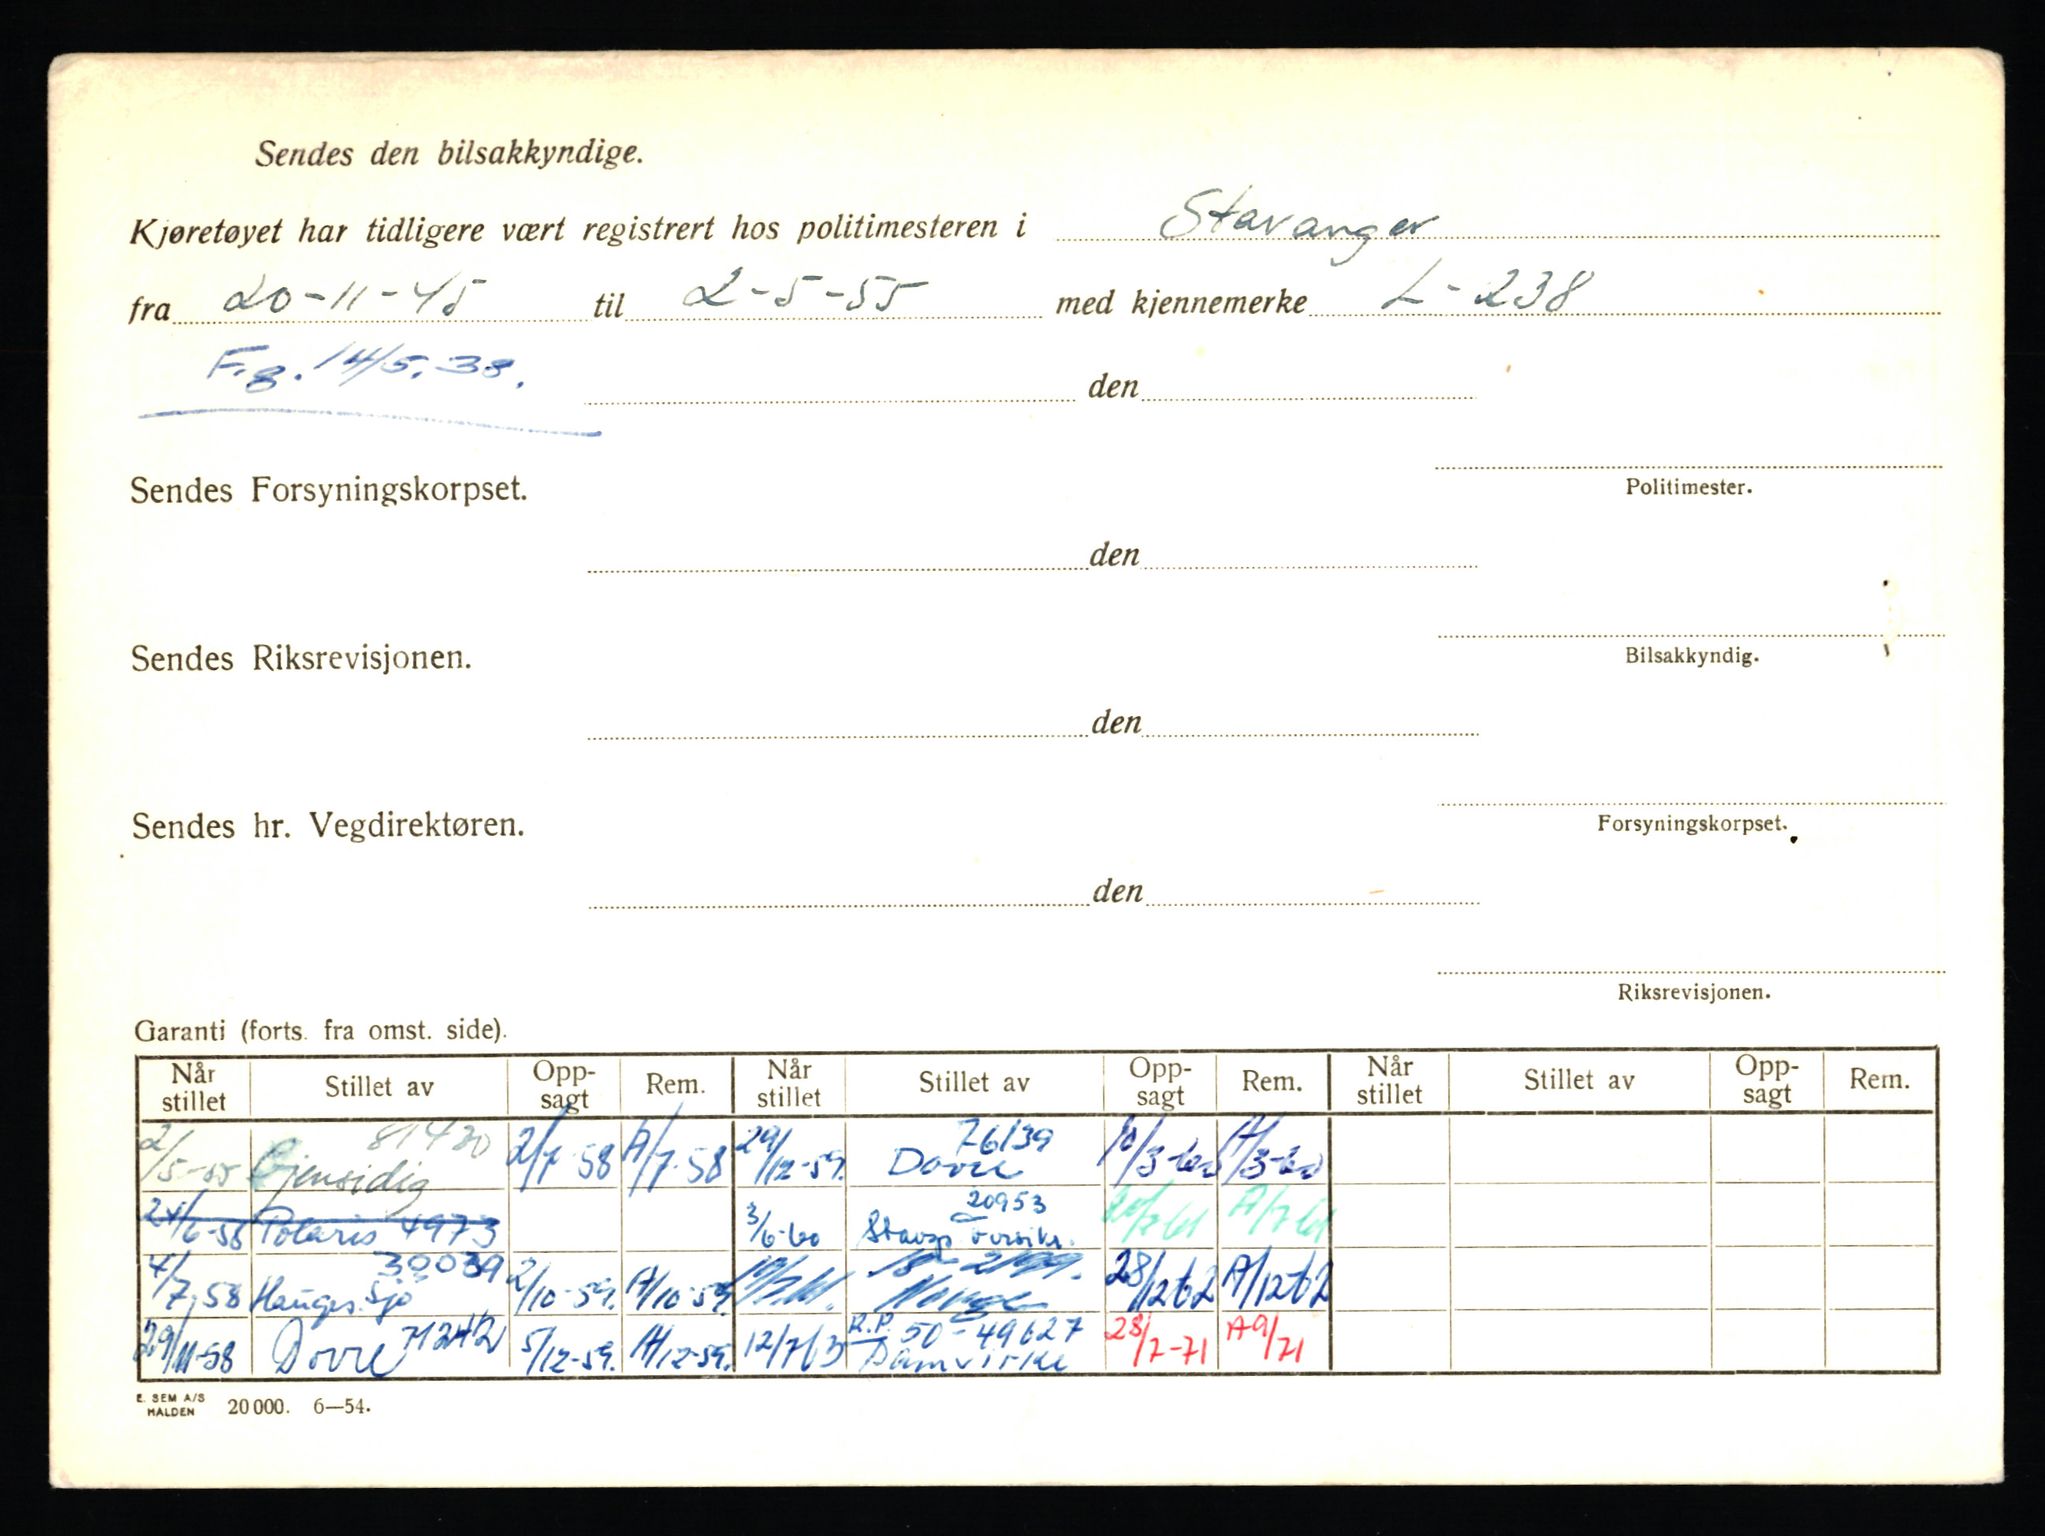 Sendes den bilsakkyndige.
Kjøretøyet har tidligere vært registrert hos politimesteren i Stavanger
fra 20-11-45 til 2-5-55 med kjennemerke L-238
F.g. 14/5.38.
den
Politimester.
Sendes Forsyningskorpset.
den
Bilsakkyndig.
Sendes Riksrevisjonen.
den
Forsyningskorpset.
Sendes hr. Vegdirektøren.
den
Riksrevisjonen.
Garanti (forts. fra omst. side).
Når stillet Stillet av Opp-sagt Rem. Når stillet Stillet av Opp-sagt Rem. Når stillet Stillet av Opp-sagt Rem.
2/5-55 Gjensidig 81430 2/7-58 A/7-58 29/12-59. Dovre 76139 10/3-60 A/3-60
24/6-58 Polaris 4973 3/6-60 Stavgs 20953 A/7-61
4/7.58 Hauges. Sjø 30039 2/10-59. A/10-59. Norge 28/12 62 A/12 62
29/11-58 Dovre 71242 5/12-59. A/12-59. 12/7 63 R.P. 50-49627 Danvirke 28/7-71 A9/71
E. SEM A/S HALDEN 20 000. 6—54.